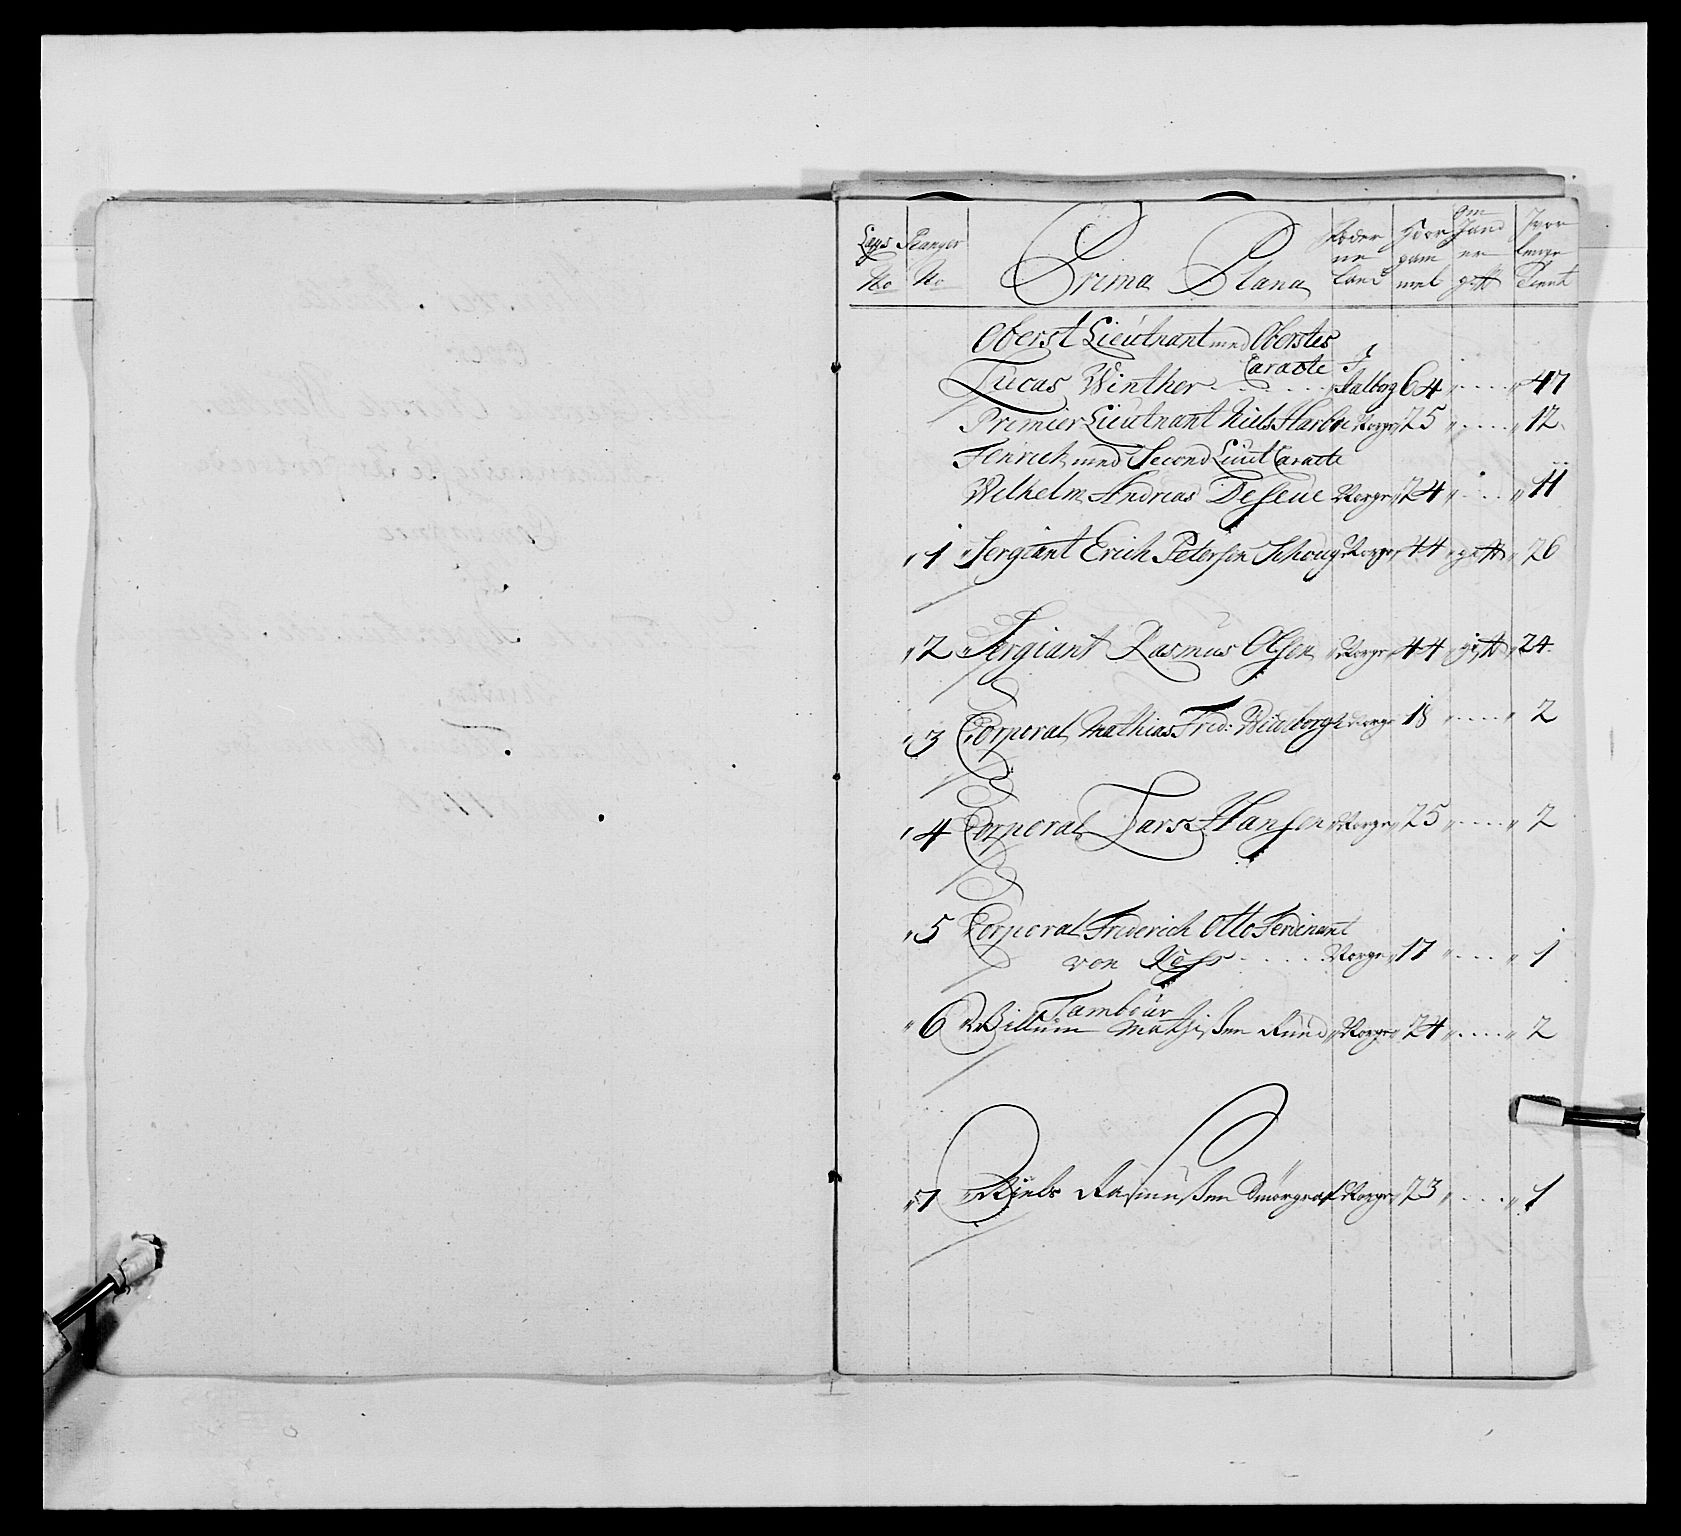 Lægs Ranger Prima Plana Føde Hvor Om Hvor
No No ne gam Hand lenge
Land mel er gift Tient
Oberst Lieutnant med Oberstes
Caracte I
Lucas Winther . . . . . Aalborg 64 " . . . . " 47
Premier Lieutnant Niels Harboe Norge 25 " . . . . " 12
Fenrick med Second Lieut Caracte
Wilhelm Andreas Norge 24 " . . . . " 11
" 1 Sergiant Erich Petersen Schoug Norge 44 " gift " 26
" 2 Sergiant Rasmus Olsen " Norge 44 gift " 24
" 3 Corporal Mathias Frid: Norge 18 " . . . . " 2
" 4 Corporal Lars Hansen " Norge 25 " . . . . " 2
" 5 Corporal Friderich Otto Ferdinant
von . . . . . Norge 17 " . . . . " 1
Tambour
" 6 Willum Mathisen Rund " Norge 24 " . . . . " 2
" 7 Niels Rasmusen Norge 23 " . . . . " 1